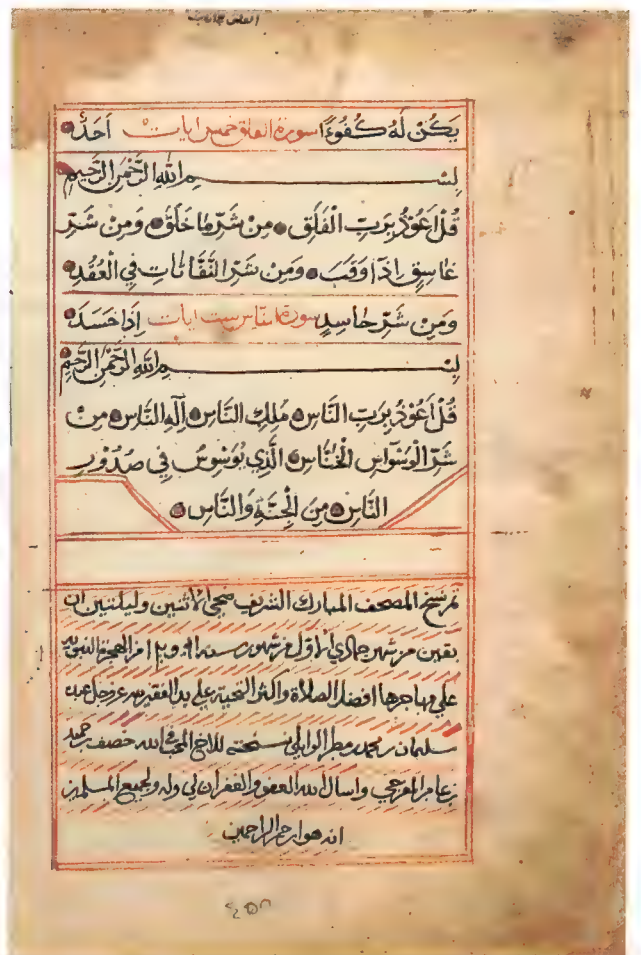 يَكُنْ لَهُ كُفُوًا سورة الفلق خمس ايات اَحَدٌ
بِسْمِ اللهِ الرَّحْمٰنِ الرَّحِيمِ
قُلْ اَعُوْذُ بِرَبِّ الْفَلَقِ مِنْ شَرِّ مَا خَلَقَ وَمِنْ شَرِّ
غَاسِقٍ اِذَا وَقَبَ وَمِنْ شَرِّ النَّفَّاثَاتِ فِي الْعُقَدِ
وَمِنْ شَرِّ حَاسِدٍ سورة الناس ست ايات اِذَا حَسَدَ
بِسْمِ اللهِ الرَّحْمٰنِ الرَّحِيمِ
قُلْ اَعُوْذُ بِرَبِّ النَّاسِ مَلِكِ النَّاسِ اِلٰهِ النَّاسِ مِنْ
شَرِّ الْوَسْوَاسِ الْخَنَّاسِ الَّذِي يُوَسْوِسُ فِي صُدُوْرِ
النَّاسِ مِنَ الْجِنَّةِ وَالنَّاسِ
تم نسخ المصحف المبارك الشريف ضحى الاثنين وليلتين ان
بقين من شهر جمادي الاول من شهور سنة من الهجرة النبويه
على مهاجرها افضل الصلاة واكمل التحية على يد الفقير لله عز وجل عبده
سليمان بن محمد بن مطر الوايلي نسخته للاخ المحب في الله خصيف بن حميد
بن عامر واسال الله العفو والغفران لي وله ولجميع المسلمين
انه هو ارحم الراحمين